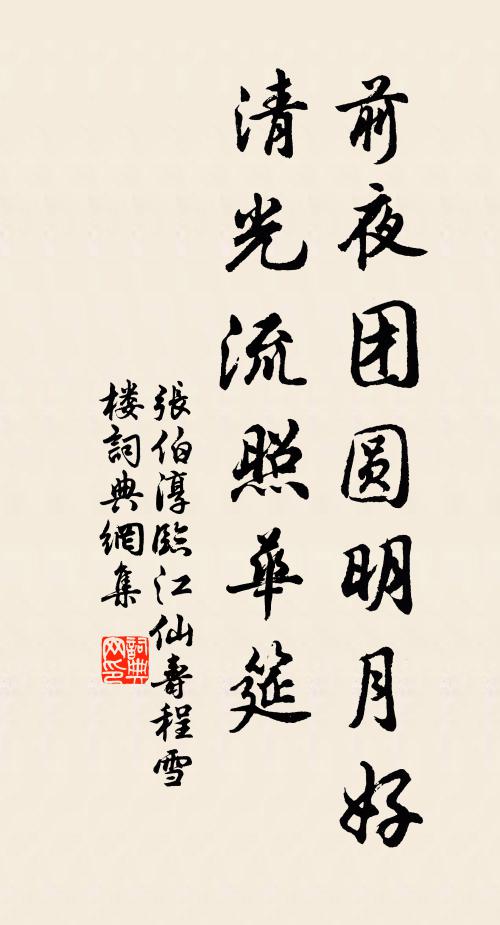 前夜团圆明月好
清光流照華筵
張伯淳臨江仙壽程雪
楼詞典網集
詞典
网印